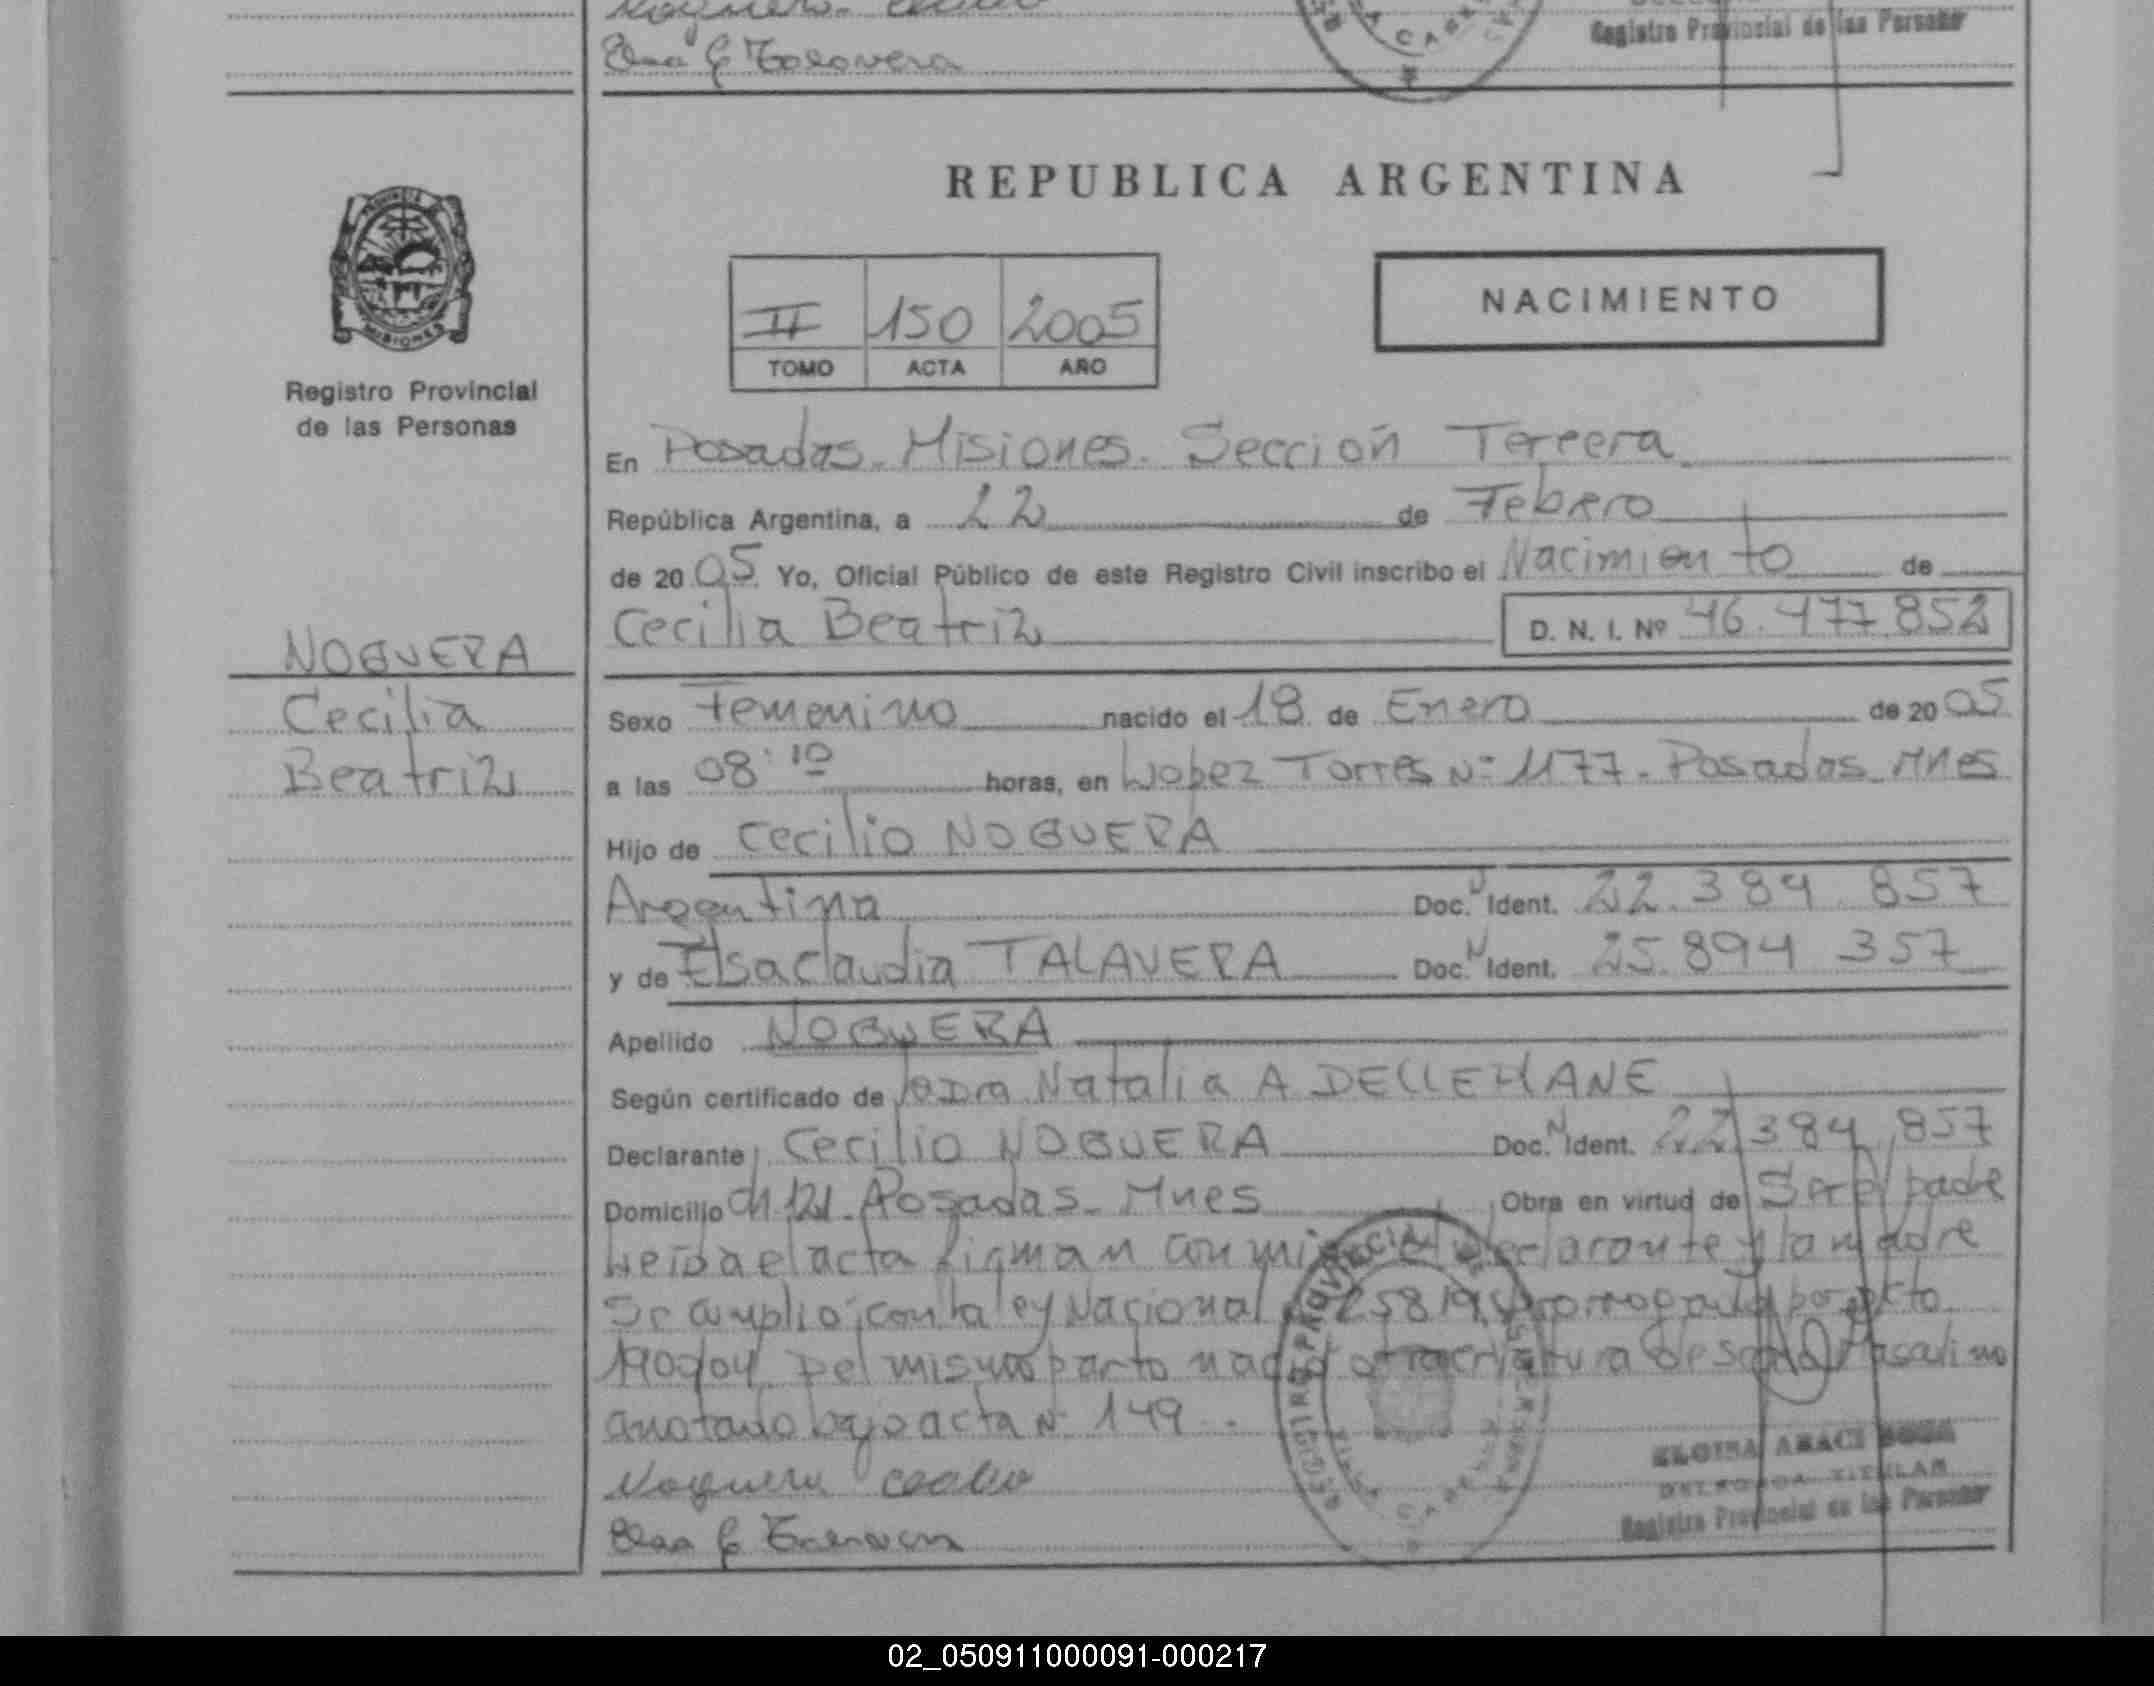 Elsa C Talavera
Registro Provincial de las Personas
REPUBLICA ARGENTINA
NACIMIENTO
II 150 2005
TOMO ACTA AÑO
Registro Provincial
de las Personas
En Posadas. Misiones. Sección Tercera
República Argentina, a 22 de Febrero
de 2005 Yo, Oficial Público de este Registro Civil inscribo el Nacimiento de
Cecilia Beatriz D. N. I. Nº 46.477.852
NOGUERA
Cecilia
Beatriz
Sexo Femenino nacido el 18 de Enero de 2005
a las 08:10 horas, en Lopez Torres Nº 1177. Posadas. Mnes
Hijo de Cecilio NOGUERA
Argentina Doc. N Ident. 22.384.857
y de Elsa Claudia TALAVERA Doc. N Ident. 25.894.357
Apellido NOGUERA
Según certificado de la Dra Natalia A DELLEHANE
Declarante Cecilio NOGUERA Doc. N Ident. 22.384.857
Domicilio Ch 121. Posadas. Mnes Obra en virtud de Ser el padre
Leida el acta firman conmigo el declarante y la madre
Se cumplio con la ley Nacional 25819 prorrogada por Dcto
1900/04 Del mismo parto nació otra criatura de sexo Masculino
anotado bajo acta Nº 149.
Noguera Cecilio
Elsa C Talavera
DELEGADA TITULAR
Registro Provincial de las Personas
02_050911000091-000217